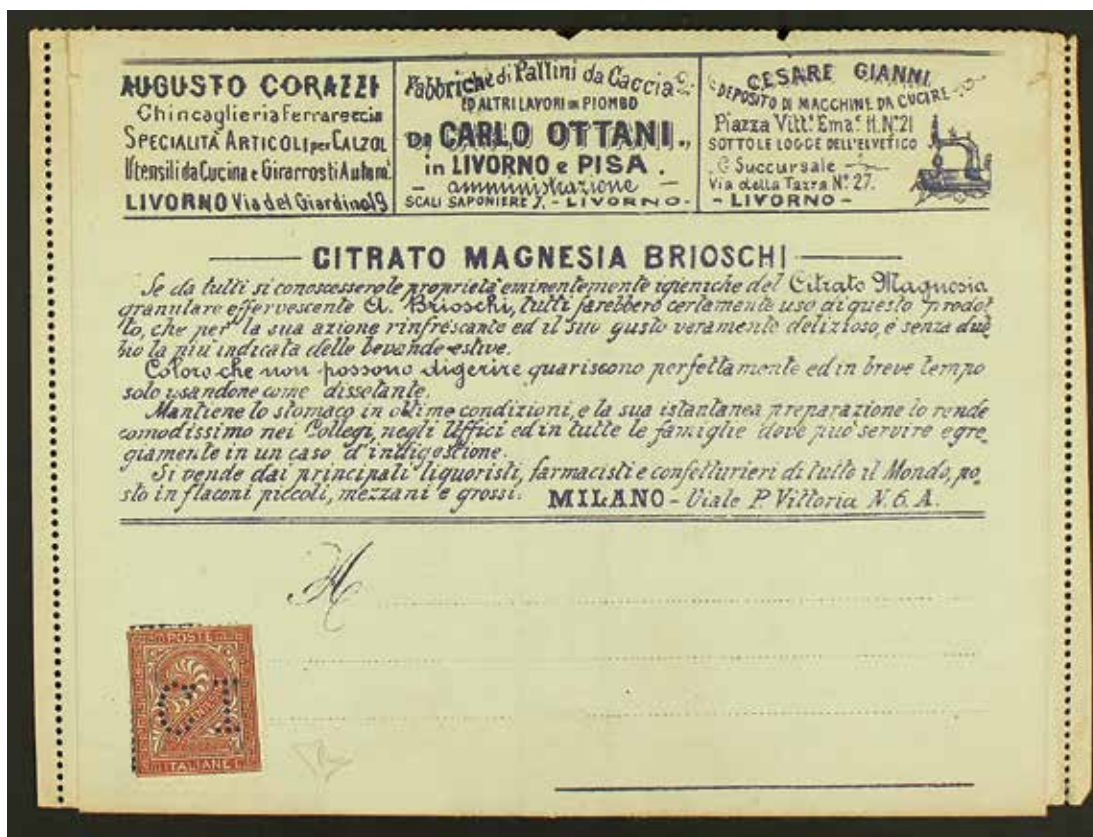 AUGUSTO CORAZZI
Chincaglieria Ferrareccia
SPECIALITÀ ARTICOLI per CALZOL.
Utensili da Cucina e Girarrosti Autom.
LIVORNO Via del Giardino 19
Fabbriche di Pallini da Caccia
ED ALTRI LAVORI IN PIOMBO
DI CARLO OTTANI.,
in LIVORNO e PISA.
- amministrazione -
SCALI SAPONIERE 7. - LIVORNO -
CESARE GIANNI,
DEPOSITO DI MACCHINE DA CUCIRE
Piazza Vitt.º Ema.e II. Nº 21
SOTTO LE LOGGE DELL'ELVETICO
Succursale
Via della Tazza Nº 27.
- LIVORNO -
CITRATO MAGNESIA BRIOSCHI
Se da tutti si conoscessero le proprietà eminentemente igieniche del Citrato Magnesia
granulare effervescente A. Brioschi, tutti farebbero certamente uso di questo prodot
to, che per la sua azione rinfrescante ed il suo gusto veramente delizioso, è senza dub
bio la più indicata delle bevande estive.
Coloro che non possono digerire guariscono perfettamente ed in breve tempo
solo usandone come dissetante.
Mantiene lo stomaco in ottime condizioni, e la sua istantanea preparazione lo rende
comodissimo nei Collegi, negli Uffici ed in tutte le famiglie dove può servire egre
giamente in un caso d'indigestione.
Si vende dai principali liquoristi, farmacisti e confetturieri di tutto il Mondo, po
sto in flaconi piccoli, mezzani e grossi. MILANO - Viale P. Vittoria N. 6. A.
A
POSTE
2
ITALIANE